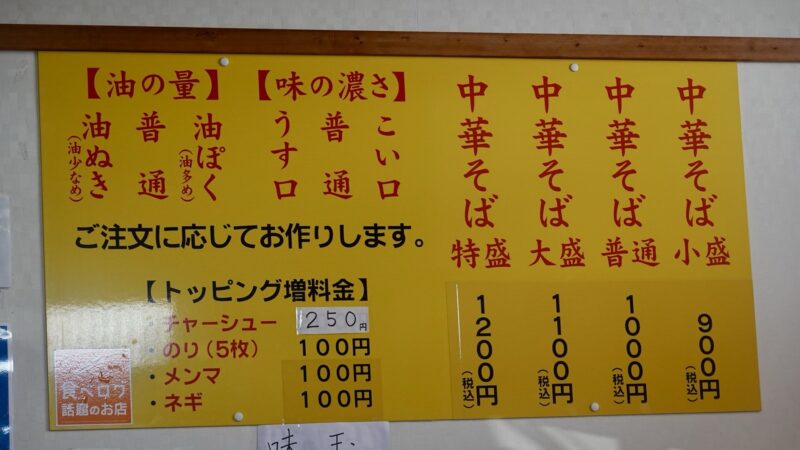 中華そば小盛 900円(税込)
中華そば普通 1000円(税込)
中華そば大盛 1100円(税込)
中華そば特盛 1200円(税込)
【味の濃さ】
こい口
普通
うす口
【油の量】
油ぽく(油多め)
普通
油ぬき(油少なめ)
ご注文に応じてお作りします。
【トッピング増料金】
・チャーシュー 250円
・のり(5枚) 100円
・メンマ 100円
・ネギ 100円
食べログ
話題のお店
味玉